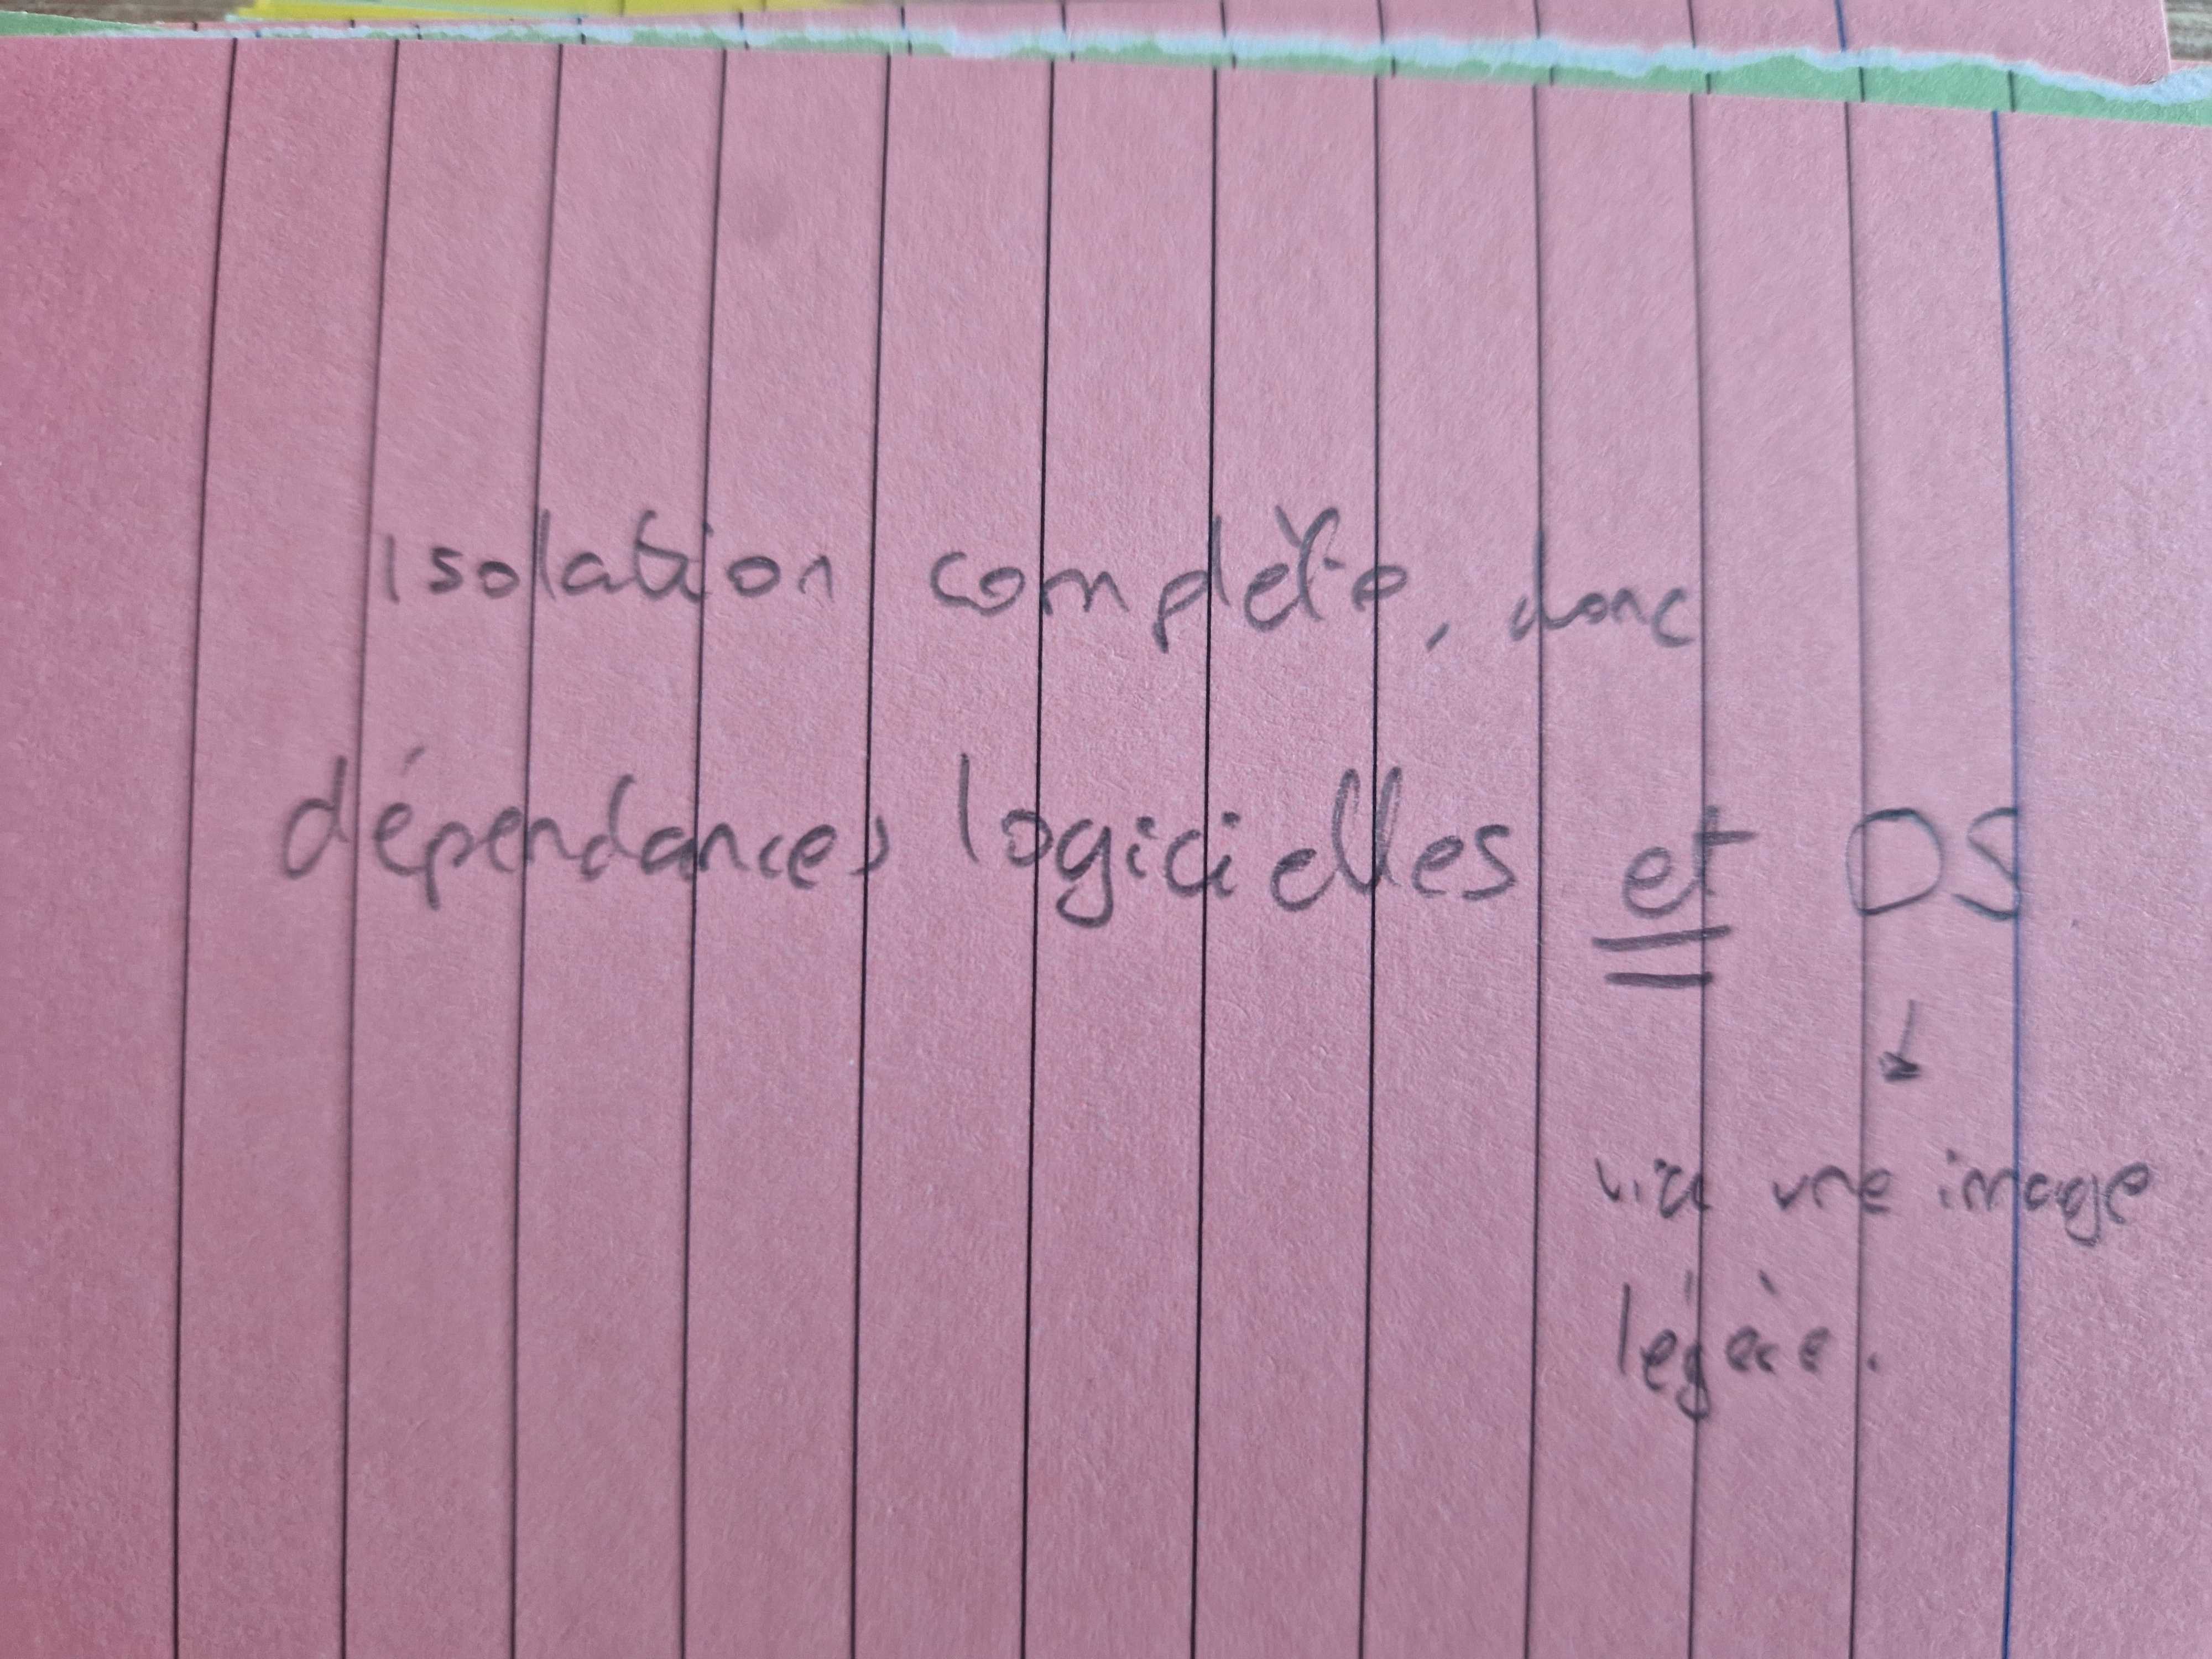 isolation complète, donc
dépendances logicielles et OS
↓
via une image
légère.